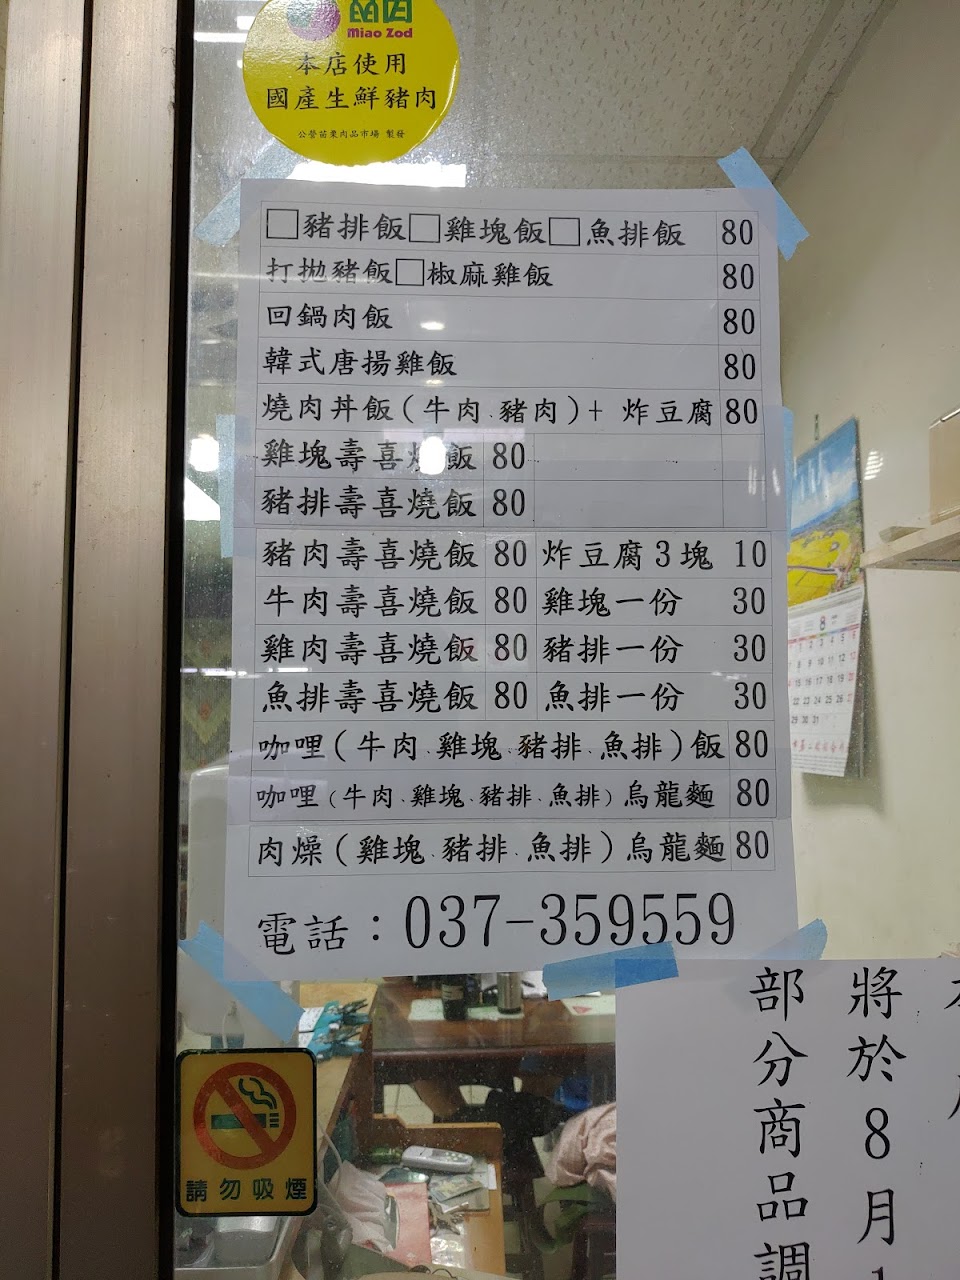 Miao Zod
本店使用
國產生鮮豬肉
公營苗栗肉品市場 製發
□豬排飯□雞塊飯□魚排飯 80
打拋豬飯□椒麻雞飯 80
回鍋肉飯 80
韓式唐揚雞飯 80
燒肉丼飯(牛肉、豬肉)+ 炸豆腐 80
雞塊壽喜燒飯 80
豬排壽喜燒飯 80
豬肉壽喜燒飯 80 炸豆腐3塊 10
牛肉壽喜燒飯 80 雞塊一份 30
雞肉壽喜燒飯 80 豬排一份 30
魚排壽喜燒飯 80 魚排一份 30
咖哩(牛肉、雞塊、豬排、魚排)飯 80
咖哩(牛肉、雞塊、豬排、魚排)烏龍麵 80
肉燥(雞塊、豬排、魚排)烏龍麵 80
電話：037-359559
將於8月
部分商品調
請勿吸煙